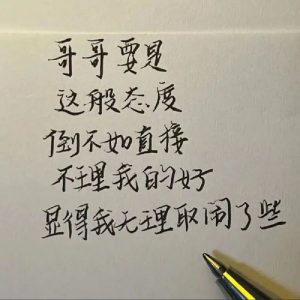 哥哥要是
这般态度
倒不如直接
不理我的好
显得我无理取闹了些